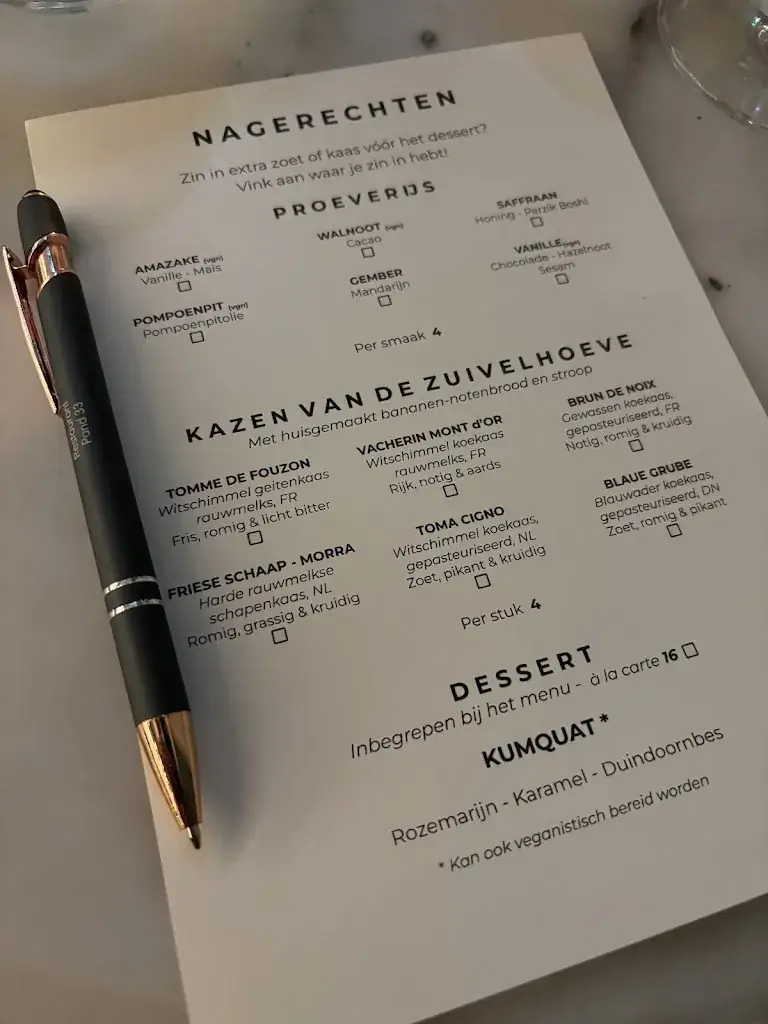 NAGERECHTEN
Zin in extra zoet of kaas vóór het dessert?
Vink aan waar je zin in hebt!
PROEVERIJS
AMAZAKE (vgn)
Vanille - Maïs
WALNOOT (vgn)
Cacao
SAFFRAAN
Honing - Perzik Boshi
POMPOENPIT (vgn)
Pompoenpitolie
GEMBER
Mandarijn
VANILLE (vgn)
Chocolade - Hazelnoot
Sesam
Per smaak 4
KAZEN VAN DE ZUIVELHOEVE
Met huisgemaakt bananen-notenbrood en stroop
TOMME DE FOUZON
Witschimmel geitenkaas
rauwmelks, FR
Fris, romig & licht bitter
VACHERIN MONT d'OR
Witschimmel koekaas
rauwmelks, FR
Rijk, notig & aards
BRUN DE NOIX
Gewassen koekaas,
gepasteuriseerd, FR
Notig, romig & kruidig
FRIESE SCHAAP - MORRA
Harde rauwmelkse
schapenkaas, NL
Romig, grassig & kruidig
TOMA CIGNO
Witschimmel koekaas,
gepasteuriseerd, NL
Zoet, pikant & kruidig
BLAUE GRUBE
Blauwader koekaas,
gepasteuriseerd, DN
Zoet, romig & pikant
Per stuk 4
DESSERT
Inbegrepen bij het menu - à la carte 16
KUMQUAT *
Rozemarijn - Karamel - Duindoornbes
* Kan ook veganistisch bereid worden
Restaurant
Pand 33